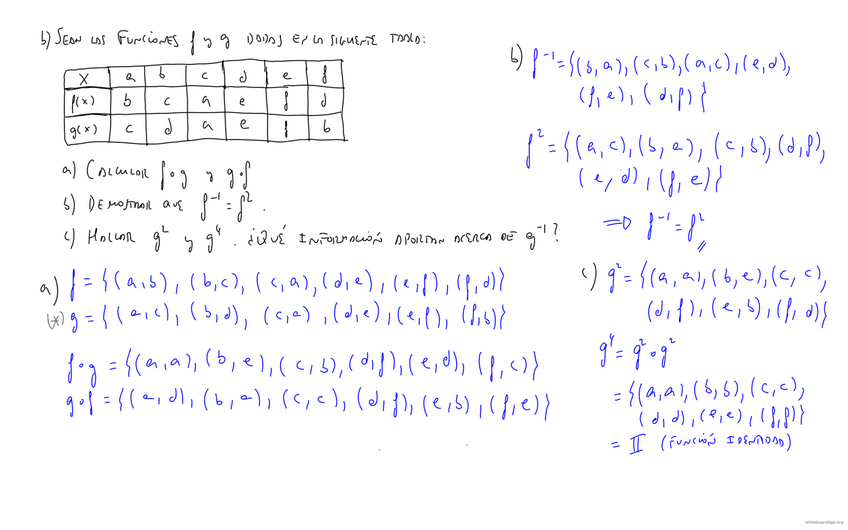 b) SEAN LAS FUNCIONES f y g DADAS EN LA SIGUIENTE TABLA:
x a b c d e f
f(x) b c a e f d
g(x) c d a e f b
a) CALCULAR f∘g y g∘f
b) DEMOSTRAR QUE f⁻¹ = f².
c) HALLAR g² y g⁴. ¿QUÉ INFORMACIÓN APORTAN ACERCA DE g⁻¹?
a) f = {(a,b), (b,c), (c,a), (d,e), (e,f), (f,d)}
(*) g = {(a,c), (b,d), (c,a), (d,e), (e,f), (f,b)}
f∘g = {(a,a), (b,e), (c,b), (d,f), (e,d), (f,c)}
g∘f = {(a,d), (b,a), (c,c), (d,f), (e,b), (f,e)}
b) f⁻¹ = {(b,a), (c,b), (a,c), (e,d),
(f,e), (d,f)}
f² = {(a,c), (b,a), (c,b), (d,f),
(e,d), (f,e)}
⇒ f⁻¹ = f²
c) g² = {(a,a), (b,e), (c,c),
(d,f), (e,b), (f,d)}
g⁴ = g²∘g²
= {(a,a), (b,b), (c,c),
(d,d), (e,e), (f,f)}
= II (FUNCIÓN IDENTIDAD)
whiteboardapp.org